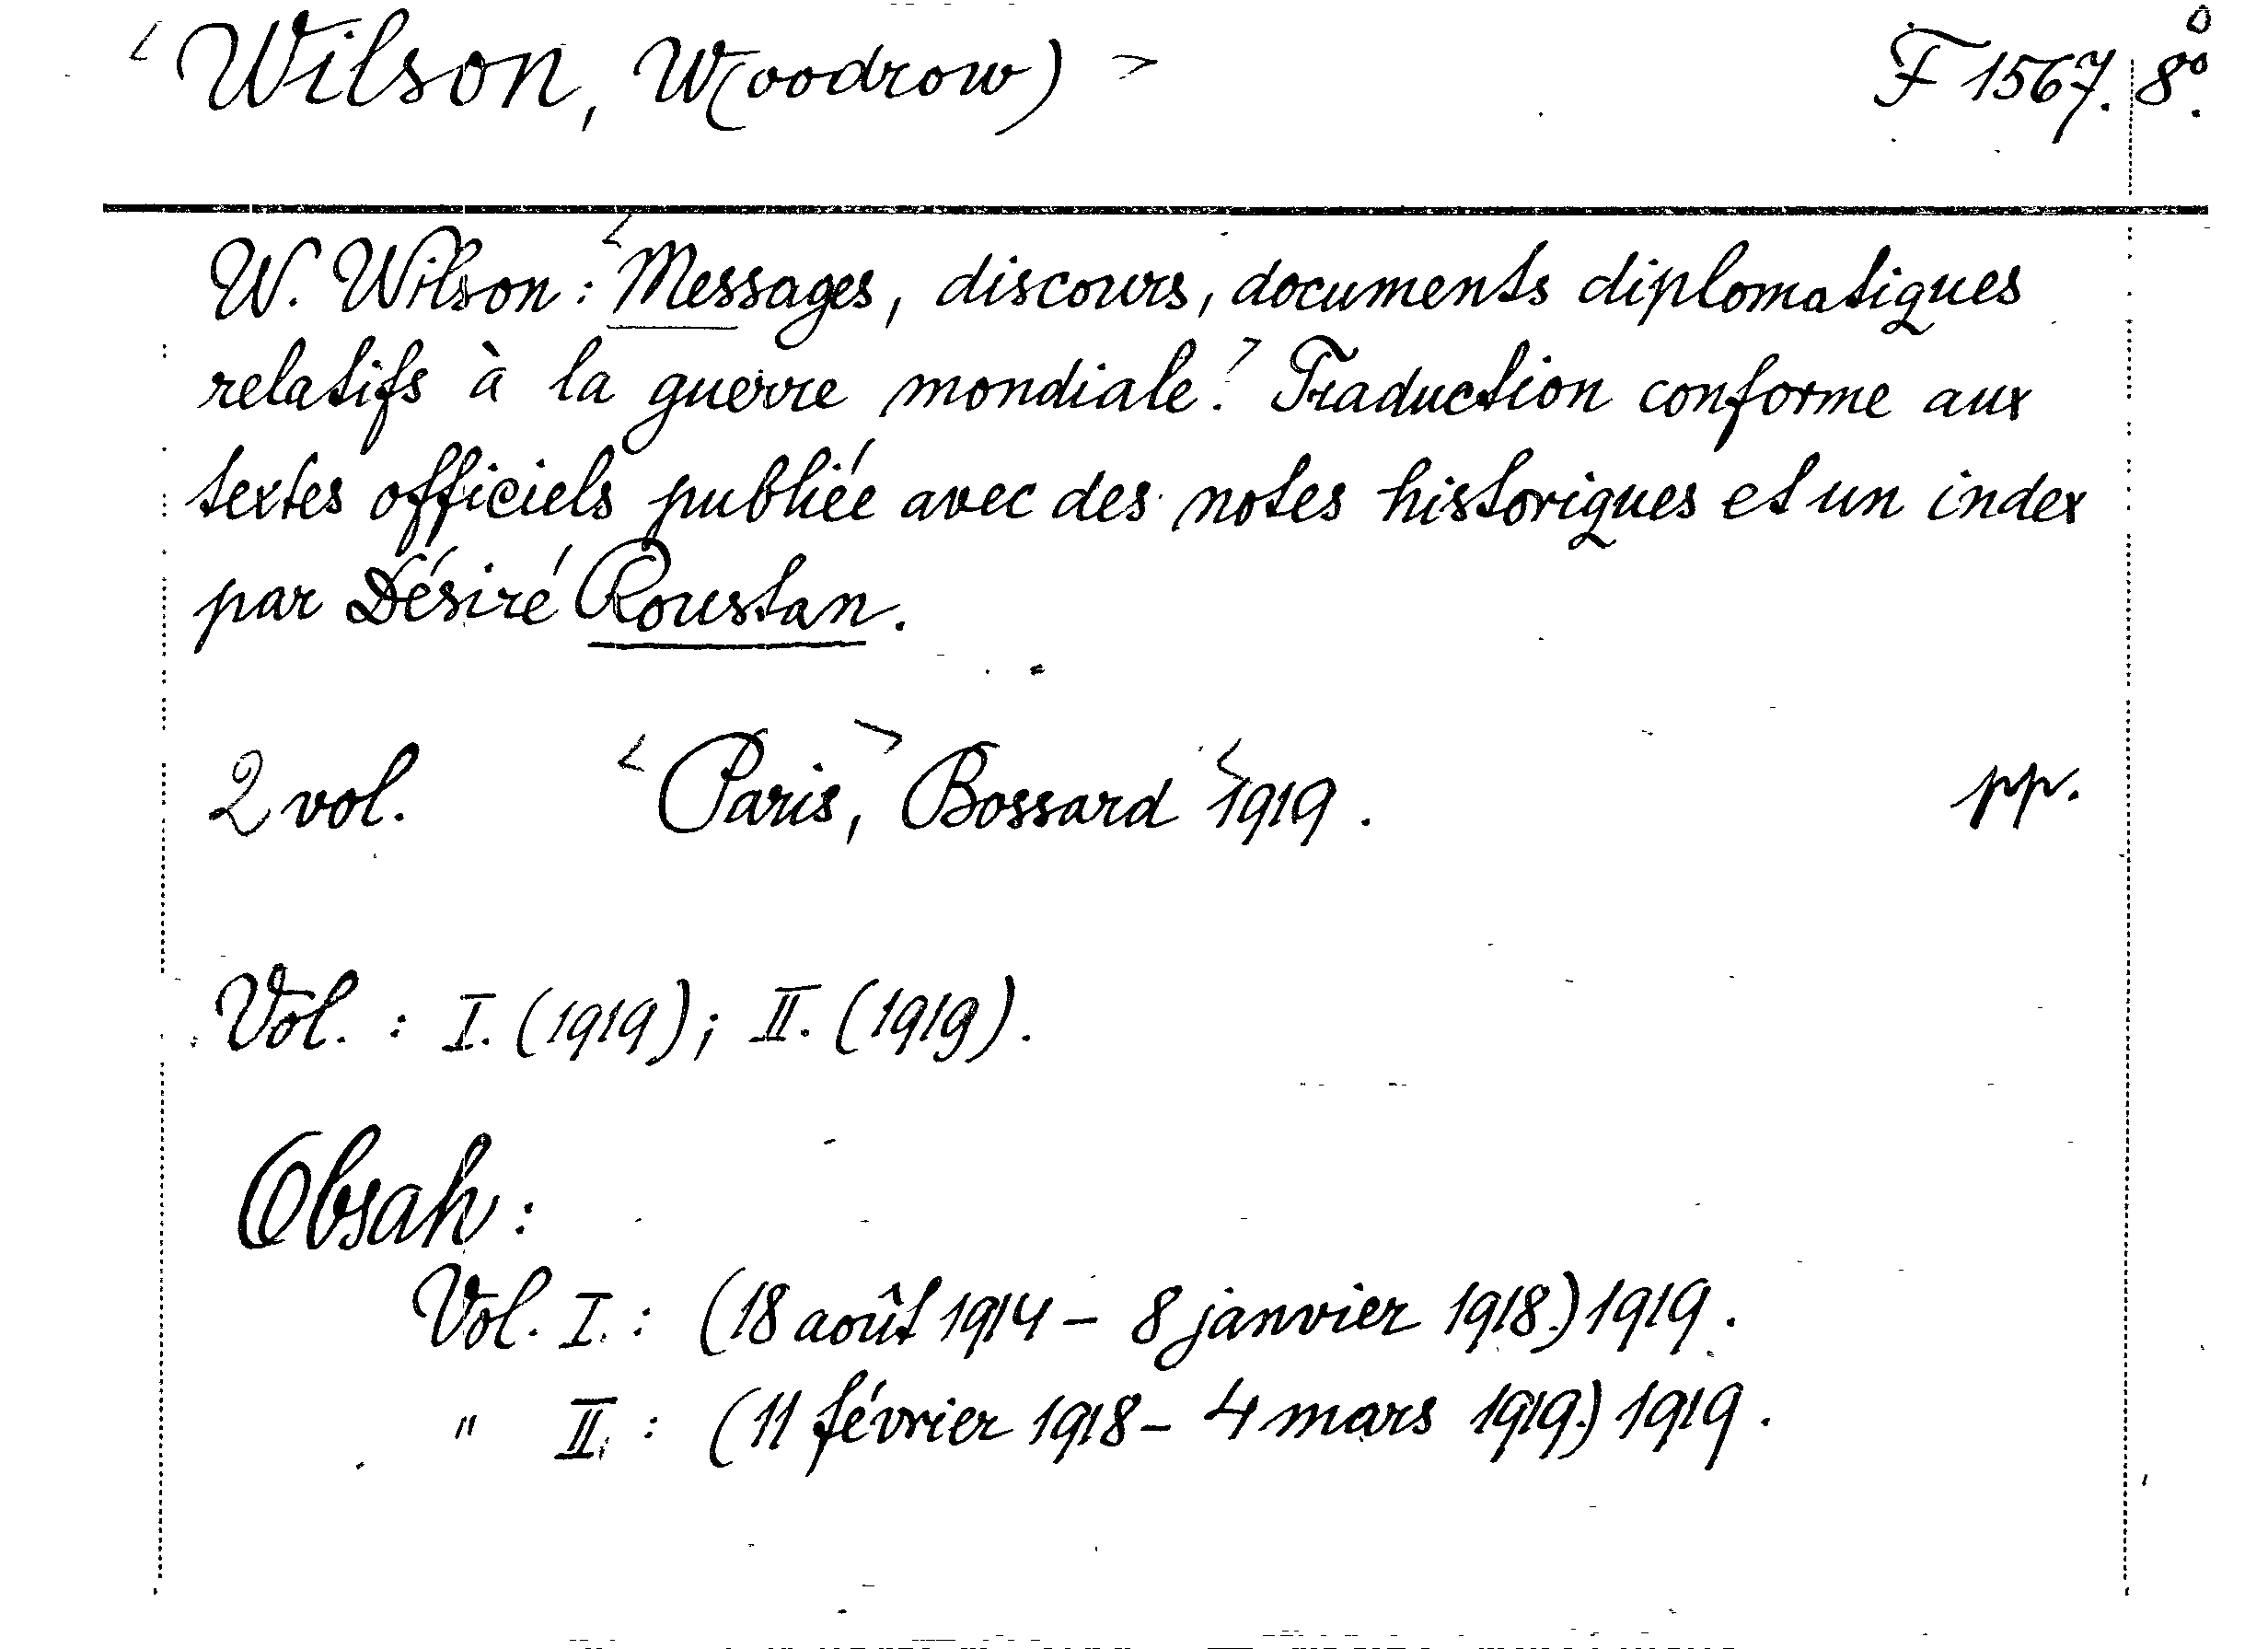 Wilson, W(oodrow) F 1567. 8°.
W. Wilson: Messages, discours, documents diplomatiques
relatifs à la guerre mondiale. Traduction conforme aux
textes officiels publiée avec des notes historiques et un index
par Désiré Roustan.
2 vol. Paris, Bossard 1919. pp.
Vol. : I. (1919); II. (1919).
Obsah:
Vol. I. : (18 août 1914 - 8 janvier 1918.) 1919.
" II. : (11 février 1918 - 4 mars 1919.) 1919.